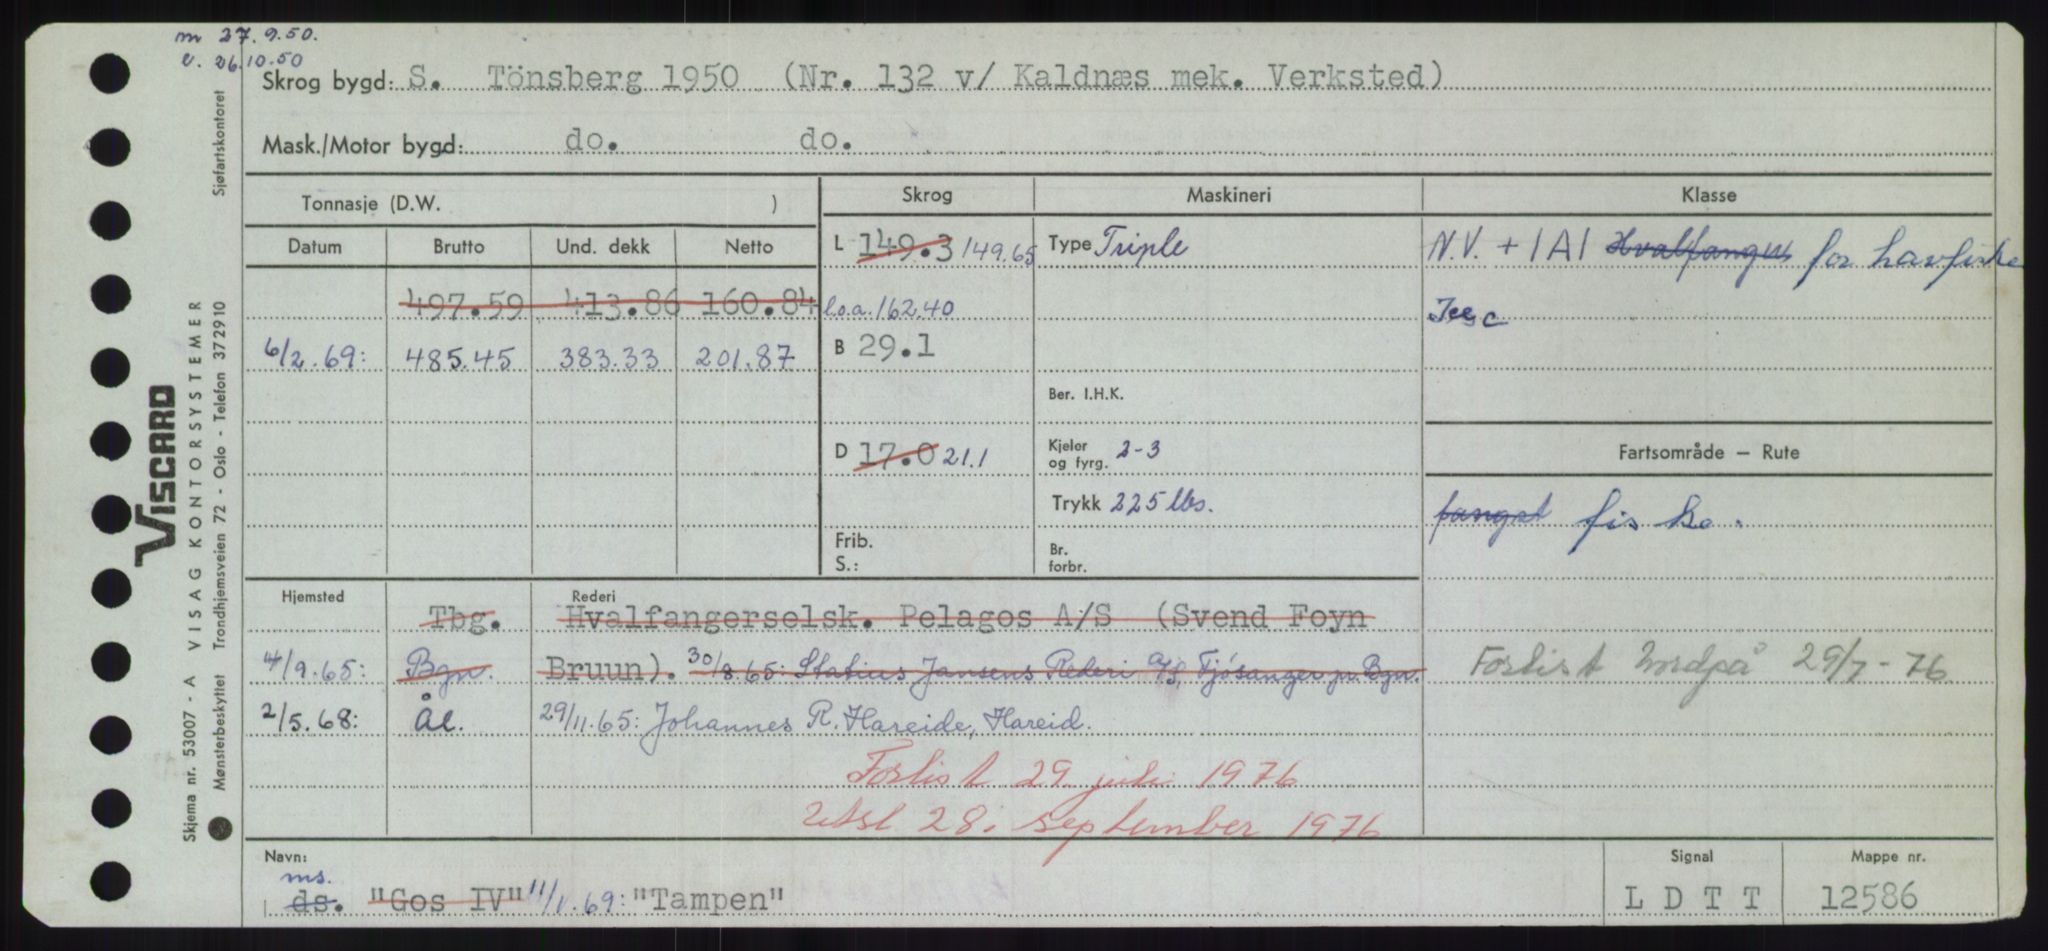 m 27.9.50.
v. 26.10.50
Skrog bygd: S. Tönsberg 1950 (Nr. 132 v/ Kaldnæs mek. Verksted)
Mask./Motor bygd: do. do.
Tonnasje (D.W. )
Skrog Maskineri Klasse
Datum Brutto Und. dekk Netto
L 149.3 149.65 Type Triple N.V. + 1A1 Hvalfanger for havfiske
497.59 413.86 160.84 l.o.a. 162.40 Ice c
6/2.69: 485.45 383.33 201.87 B 29.1
Ber. I.H.K.
Fartsområde — Rute
D 17.0 21.1 Kjeler og fyrg. 2-3
Trykk 225 lbs. fangst fiske.
Frib.
S.:
Br.
forbr.
Hjemsted Rederi
Tbg. Hvalfangerselsk. Pelagos A/S (Svend Foyn
4/9.65: Bgn. Bruun). 30/8.65: Statius Jansens Rederi A/S, Fjøsanger pr. Bgn. Forlist Nordpå 29/7-76
2/5.68: Ål. 29/11.65: Johannes R. Hareide, Hareid.
Forlist 29. juli 1976
28. september 1976
Navn:
ms.
ds. "Gos IV" 11/1.69: "Tampen"
Signal
L D T T
Mappe nr.
12586
VISCARD
Skjema nr. 53007 - A VISAG KONTORSYSTEMER
Mønsterbeskyttet Trondhjemsveien 72 - Oslo - Telefon 372910 Sjøfartskontoret